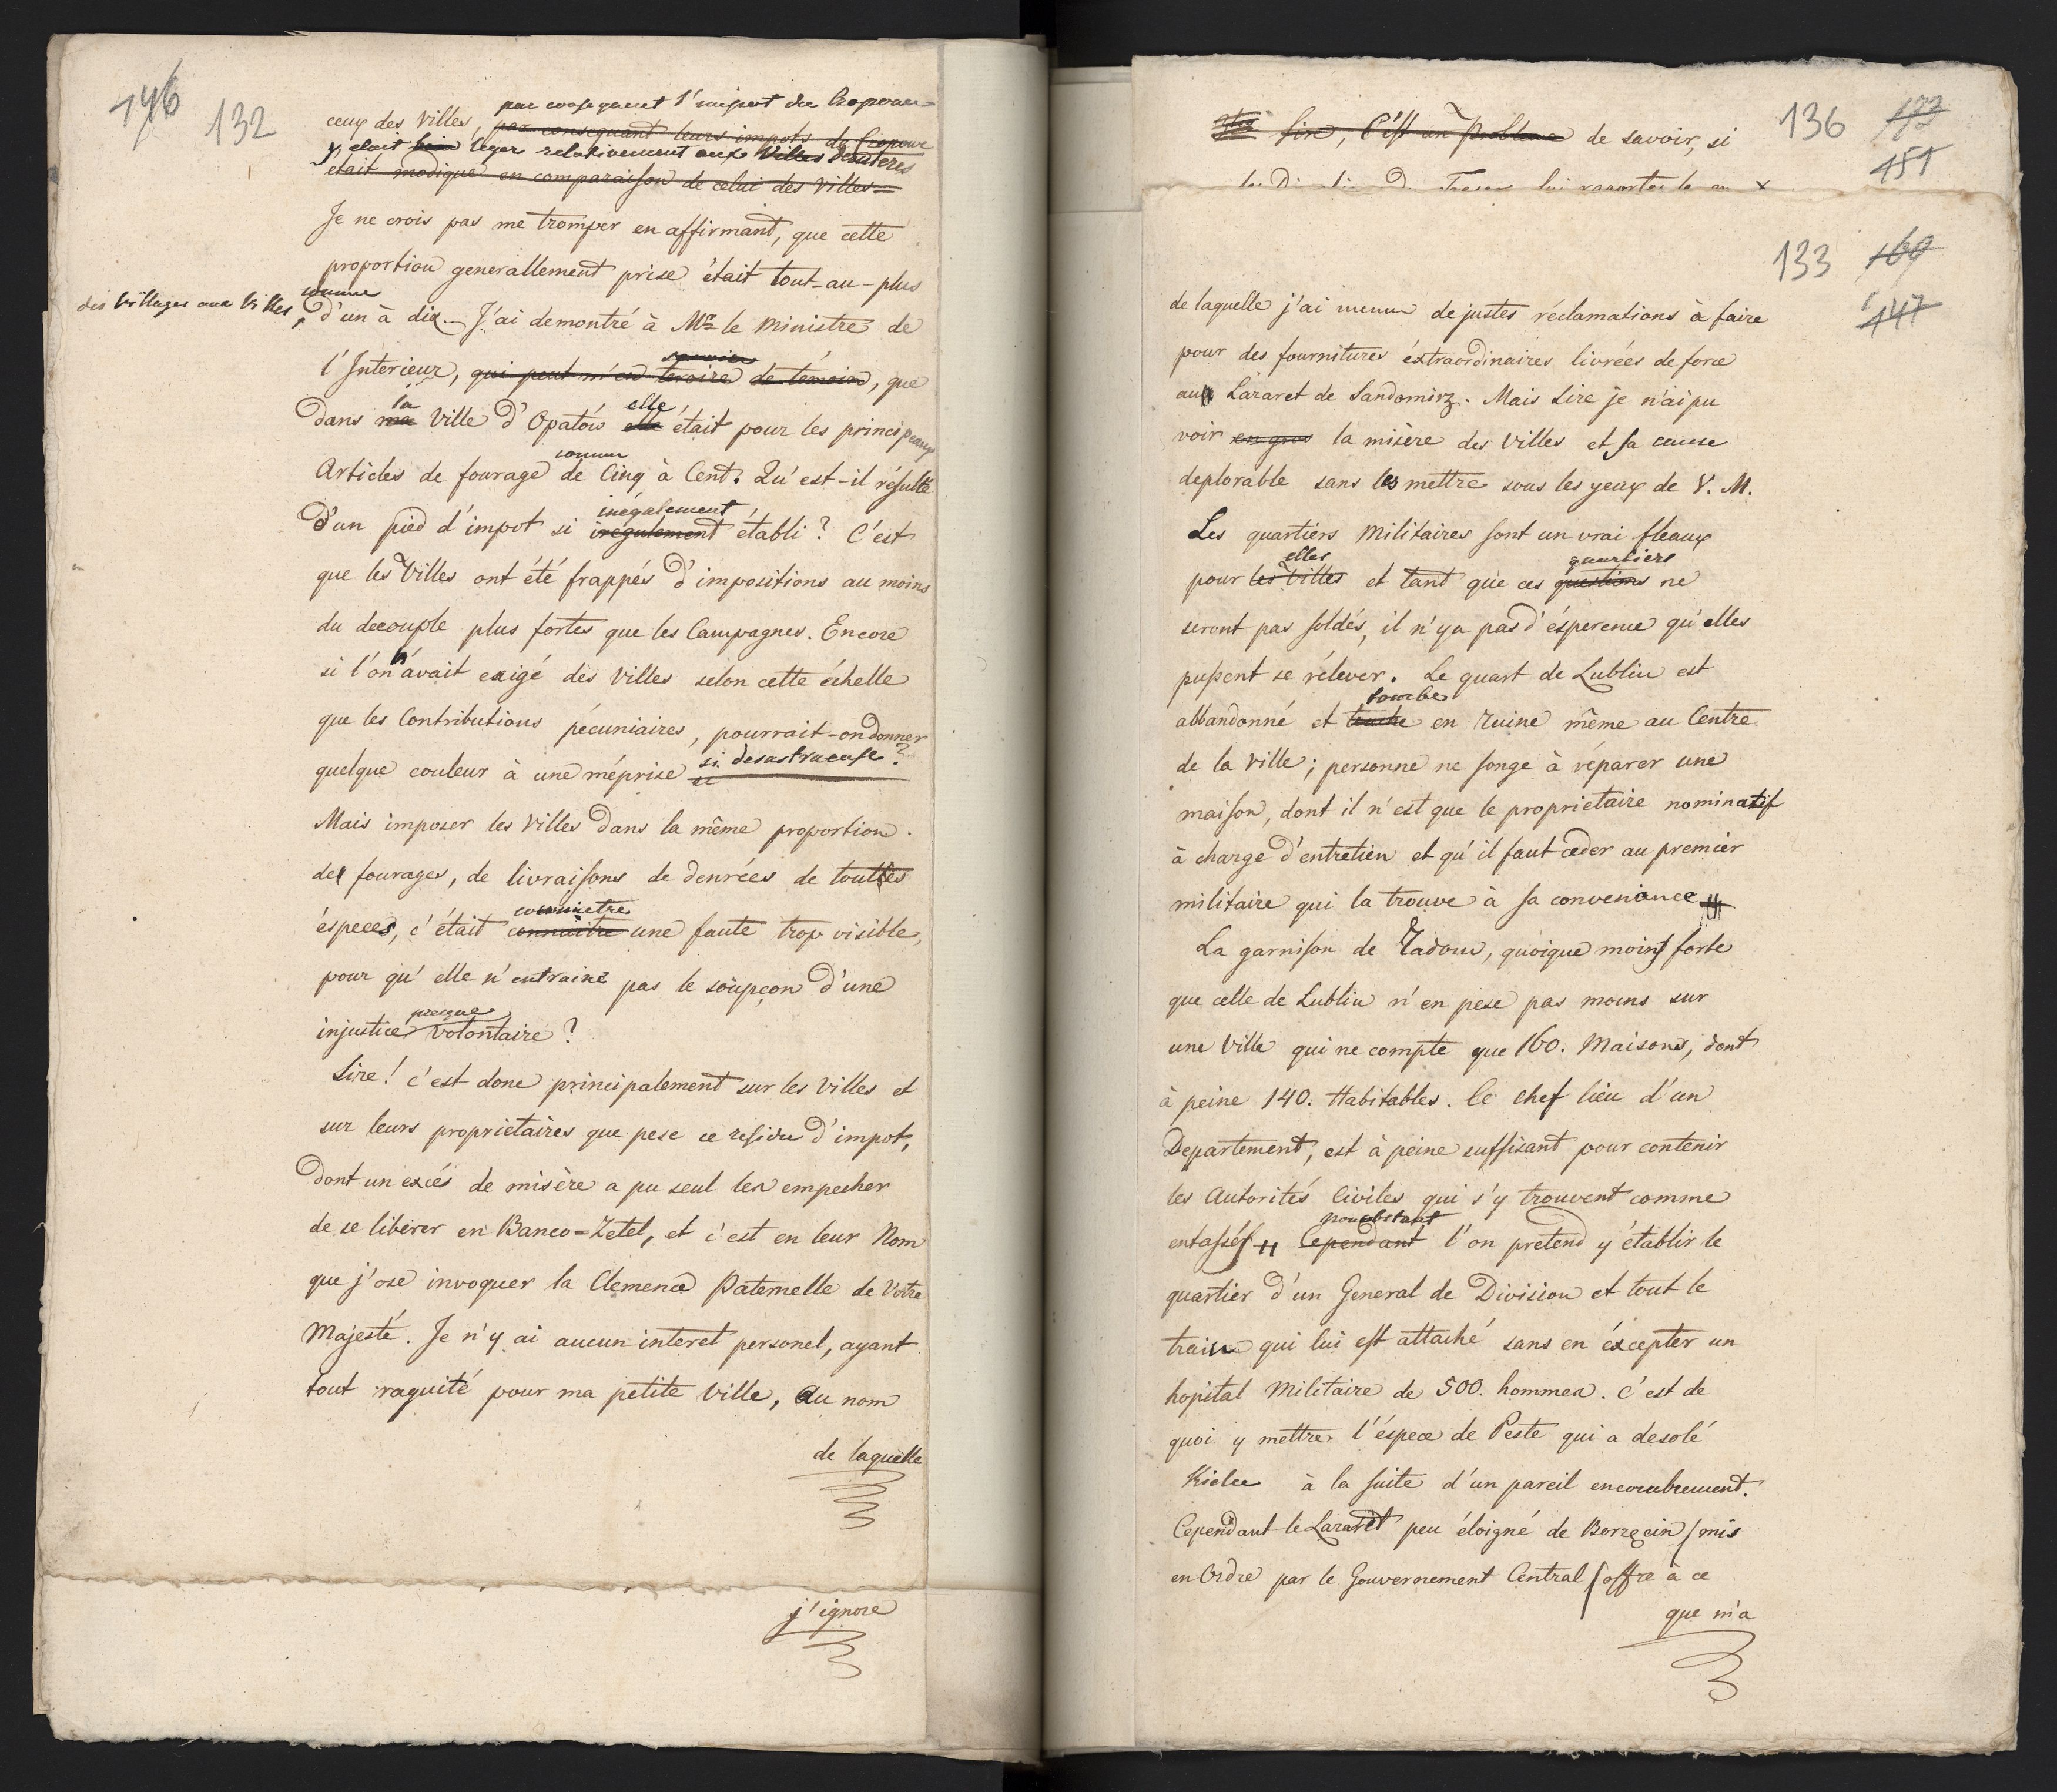 146 132
par consequent l'impot du Croponce
ceux des Villes, par consequant leurs impots de Croponce
y était bien léger relativement aux Villes dernieres
etait modique en comparaison de celui des Villes=
Je ne crois pas me tromper en affirmant, que cette
proportion generallement prise était tout-au-plus
comme
des Villages aux Villes, d'un à dix. J'ai demontré à Mr le Ministre de
l'Interieur, qui peut m'en servoire de temoin, que
la elle
dans ma Ville d'Opatów elle était pour les principeaux
comme
Articles de fourage de Cinq à Cent. Qu'est-il résulté
inégalement
D'un pied d'impot si irégulement établi? C'est
que les Villes ont été frappés d'impositions au moins
du decouple plus fortes que les Campagnes. Encore
si l'on n'avait exigé des Villes selon cette échelle
que les Contributions pécuniaires, pourrait-on donner
quelque couleur à une méprise si si desastreuse?
Mais imposer les Villes dans la même proportion
des fourages, de livraisons de denrées de touttes
commetre
éspeces, c'était connaitre une faute trop visible,
pour qu'elle n'entraine pas le soupçon d'une
presque
injustice volontaire?
Sire! c'est donc principalement sur les Villes et
sur leurs proprietaires que pese ce residu d'impot,
dont un excés de misère a pu seul les empecher
de se libérer en Banco=Zetel, et c'est en leur Nom
que j'ose invoquer la Clemence Paternelle de Votre
Majesté. Je n'y ai aucun interet personel, ayant
tout raquité pour ma petite Ville, au nom
de laquelle
j'ignore
fin, C'est un Probleme de savoir, si
136 177
151
133 160
147
de laquelle j'ai meme de justes réclamations à faire
pour des fournitures éxtraordinaires livrées de force
au Lazaret de Sandomirz. Mais Sire je n'ai pu
voir en gros la misère des Villes et sa cause
deplorable sans les mettre sous les yeux de V. M.
Les quartiers Militaires sont un vrai fleaux
elles quartiers
pour les Villes et tant que ces questions ne
seront pas soldés, il n'y a pas d'ésperence qu'elles
pussent se rélever. Le quart de Lublin est
tombe
abbandonné et touche en ruine même au Centre
de la Ville; personne ne songe à réparer une
maison, dont il n'est que le proprietaire nominatif
à charge d'entretien et qu'il faut ceder au premier
militaire qui la trouve à sa convenance
La garnison de Radom, quoique moins forte
que celle de Lublin n'en pese pas moins sur
une Ville qui ne compte que 160. Maisons, dont
à peine 140. Habitables. Ce chef lieu d'un
Departement, est à peine suffisant pour contenir
les Autorités Civiles qui s'y trouvent comme
nonobstant
entassés Cependant l'on pretend y établir le
quartier d'un General de Division et tout le
train qui lui est attaché sans en éxcepter un
hopital Militaire de 500. hommes. c'est de
quoi y mettre l'éspece de Peste qui a desolé
Kielce à la suite d'un pareil encombrement.
Cependant le Lazaret peu éloigné de Borzęcin (mis
en Ordre par le Gouvernement Central) offre à ce
que m'a